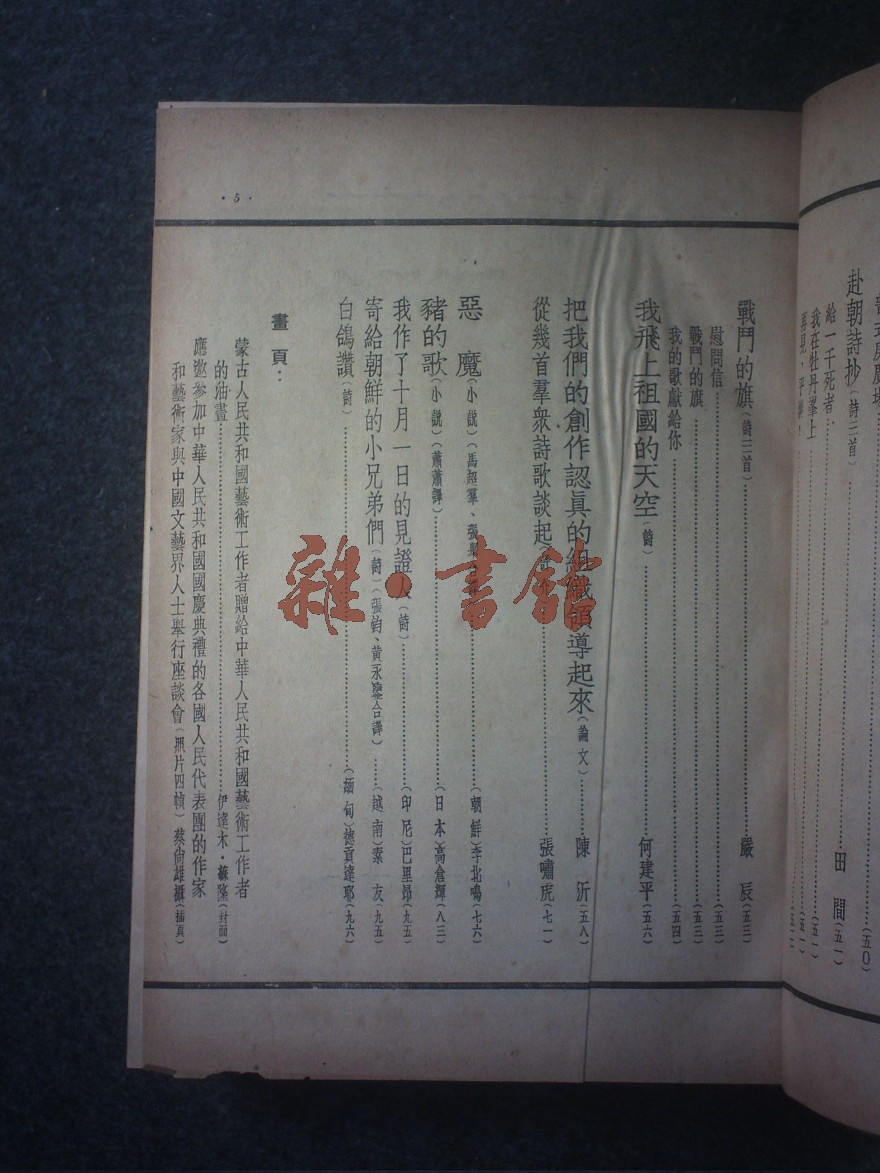 赴朝詩抄(詩三首)……田間(五一)
給一千死者……(五一)
我在牡丹峯上……(五一)
再見,平壤!
戰鬥的旗(詩三首)……嚴辰(五三)
慰問信……(五三)
戰鬥的旗……(五三)
我的歌獻給你……(五四)
我飛上祖國的天空(詩)……何建平(五六)
把我們的創作認眞的組織領導起來(論文)……陳沂(五八)
從幾首羣衆詩歌談起……張嘯虎(七一)
惡魔(小說)(馬韶羣、張……(朝鮮)李北鳴(七六)
豬的歌(小說)(蕭蕭譯)……(日本)高倉輝(八三)
我作了十月一日的見證人(詩)……(印尼)巴里昂(九五)
寄給朝鮮的小兄弟們(詩)(張鈞、黃永鑒合譯)……(越南)素友(九五)
白鴿讚(詩)……(緬甸)德貢達耶(九六)
畫頁:
蒙古人民共和國藝術工作者贈給中華人民共和國藝術工作者
的油畫……伊達木·蘇隆(封面)
應邀參加中華人民共和國國慶典禮的各國人民代表團的作家
和藝術家與中國文藝界人士舉行座談會(照片四幀)蔡尚雄攝(揷頁)
·5·
雜·書館